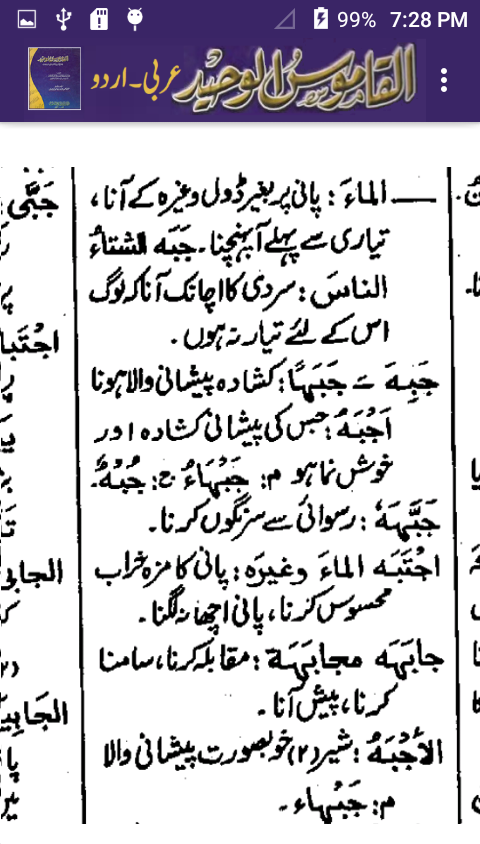 99% 7:28 PM
القاموس الوحید عربی۔اردو
— الماءَ: پانی پر بغیر ڈول وغیرہ کے آنا،
تیاری سے پہلے آپہنچنا۔ جَبَه الشتاءُ
الناسَ: سردی کا اچانک آنا کہ لوگ
اس کے لئے تیار نہ ہوں۔
جَبِهَ ــَ جَبَهًا: کشادہ پیشانی والا ہونا
اَجْبَهُ: جس کی پیشانی کشادہ اور
خوش نما ہو م: جَبْهَاءُ ج: جُبْهٌ۔
جَبَّهَهٗ: رسوائی سے سرنگوں کرنا۔
اجْتَبَه الماءَ وغيرَه: پانی کا مزہ خراب
محسوس کرنا، پانی اچھا نہ لگنا۔
جابَهَه مجابَهَة: مقابلہ کرنا، سامنا
کرنا، پیش آنا۔
الأَجْبَهُ: شیر (۲) خوبصورت پیشانی والا
م: جَبْهاء۔
جَبَّى
اجْتَبا
الجابي
(۲)